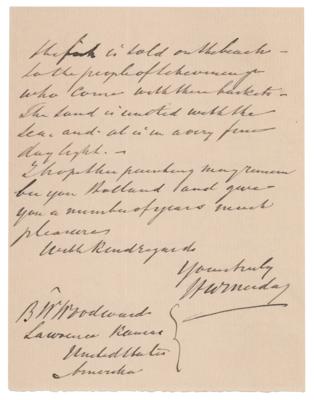 the fish is sold on the beach -
to the people of Scheveninge
who come with there baskets -
The sand is united with the
sea - and - it is in a very fine
day light. -
I hope this painting may remem
ber you Holland and give
you a number of years much
pleasures
With Kind regards
Yours truly
HWMesdag
B W Woodward
Lawrence Kansas
United States
Amerika